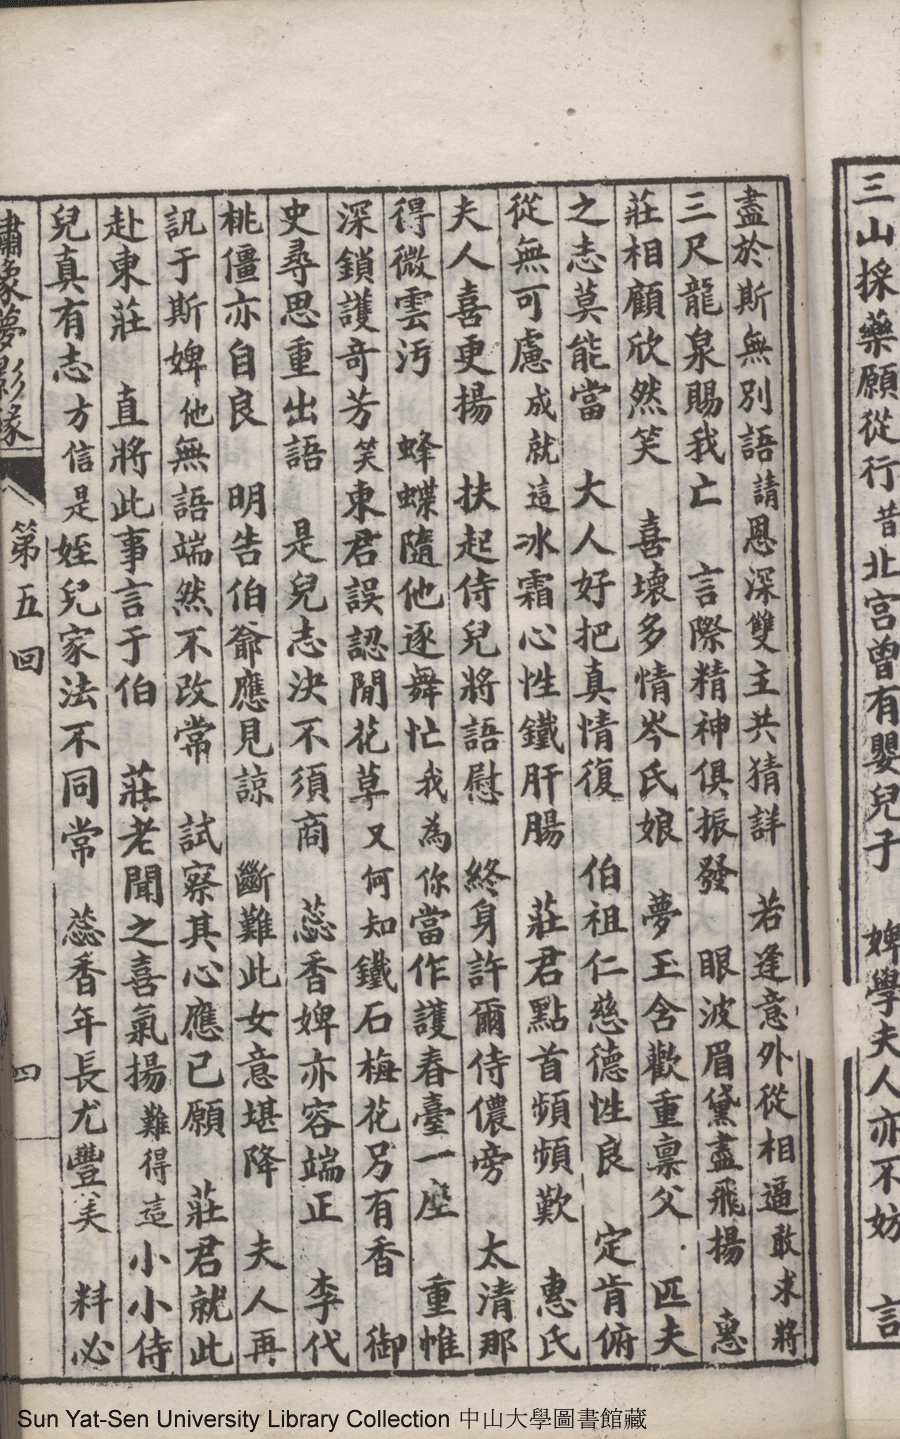 三山採藥願從行昔北宮曾有嬰兒子 婢學夫人亦不妨 言
盡於斯無別語請恩深雙主共猜詳 若逢意外從相逼敢求將
三尺龍泉賜我亡 言際精神俱振發 眼波眉黛盡飛揚 惠
莊相顧欣然笑 喜壞多情岑氏娘 夢玉含歡重稟父 匹夫
之志莫能當 大人好把真情復 伯祖仁慈德性良 定肯俯
從無可慮成就這冰霜心性鐵肝腸 莊君點首頻頻歎 惠氏
夫人喜更揚 扶起侍兒將語慰 終身許爾侍儂旁 太清那
得微雲污 蜂蝶隨他逐舞忙我為你當作護春臺一座 重帷
深鎖護奇芳笑東君誤認閒花草又何知鐵石梅花另有香 御
史尋思重出語 是兒志決不須商 蕊香婢亦容端正 李代
桃僵亦自良 明告伯爺應見諒 斷難此女意堪降 夫人再
訊于斯婢他無語端然不改常 試察其心應已願 莊君就此
赴東莊 直將此事言于伯 莊老聞之喜氣揚難得這小小侍
兒真有志方信是姪兒家法不同常 蕊香年長尤豐美 料必
繡像夢影緣 第五回 四
Sun Yat-Sen University Library Collection 中山大學圖書館藏